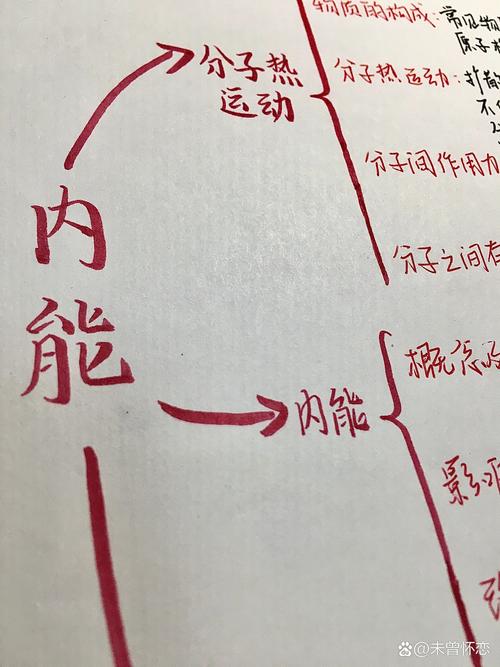 物质的构成：常见物
原子
分子热
运动
分子热运动：扩散
不
分子间作用力
分子之间有
内
能
内能
概念
影响
@未曾怀恋